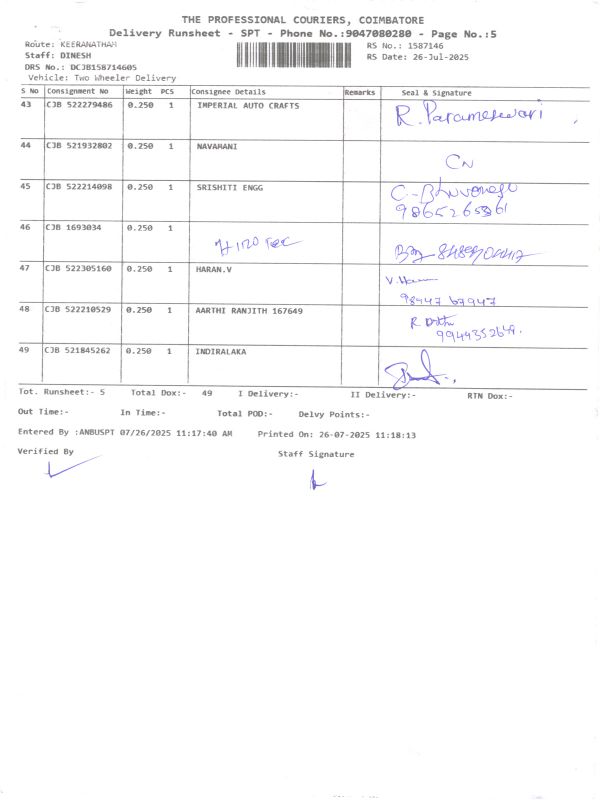 THE PROFESSIONAL COURIERS, COIMBATORE
Delivery Runsheet - SPT - Phone No.:9047080280 - Page No.:5
Route: KEERANATHAM
RS No.: 1587146
Staff: DINESH
RS Date: 26-Jul-2025
DRS No.: DCJB158714605
Vehicle: Two Wheeler Delivery
S No Consignment No Weight PCS Consignee Details Remarks Seal & Signature
43 CJB 522279486 0.250 1 IMPERIAL AUTO CRAFTS R. Parameswari
44 CJB 521932802 0.250 1 NAVAMANI
CN
45 CJB 522214098 0.250 1 SRISHITI ENGG C.
9865265361
46 CJB 1693034 0.250 1
47 CJB 522305160 0.250 1 HARAN.V V.
98947 67947
48 CJB 522210529 0.250 1 AARTHI RANJITH 167649 R
49 CJB 521845262 0.250 1 INDIRALAKA
Tot. Runsheet:- 5 Total Dox:- 49 I Delivery:- II Delivery:- RTN Dox:-
Out Time:- In Time:- Total POD:- Delvy Points:-
Entered By :ANBUSPT 07/26/2025 11:17:40 AM Printed On: 26-07-2025 11:18:13
Verified By Staff Signature